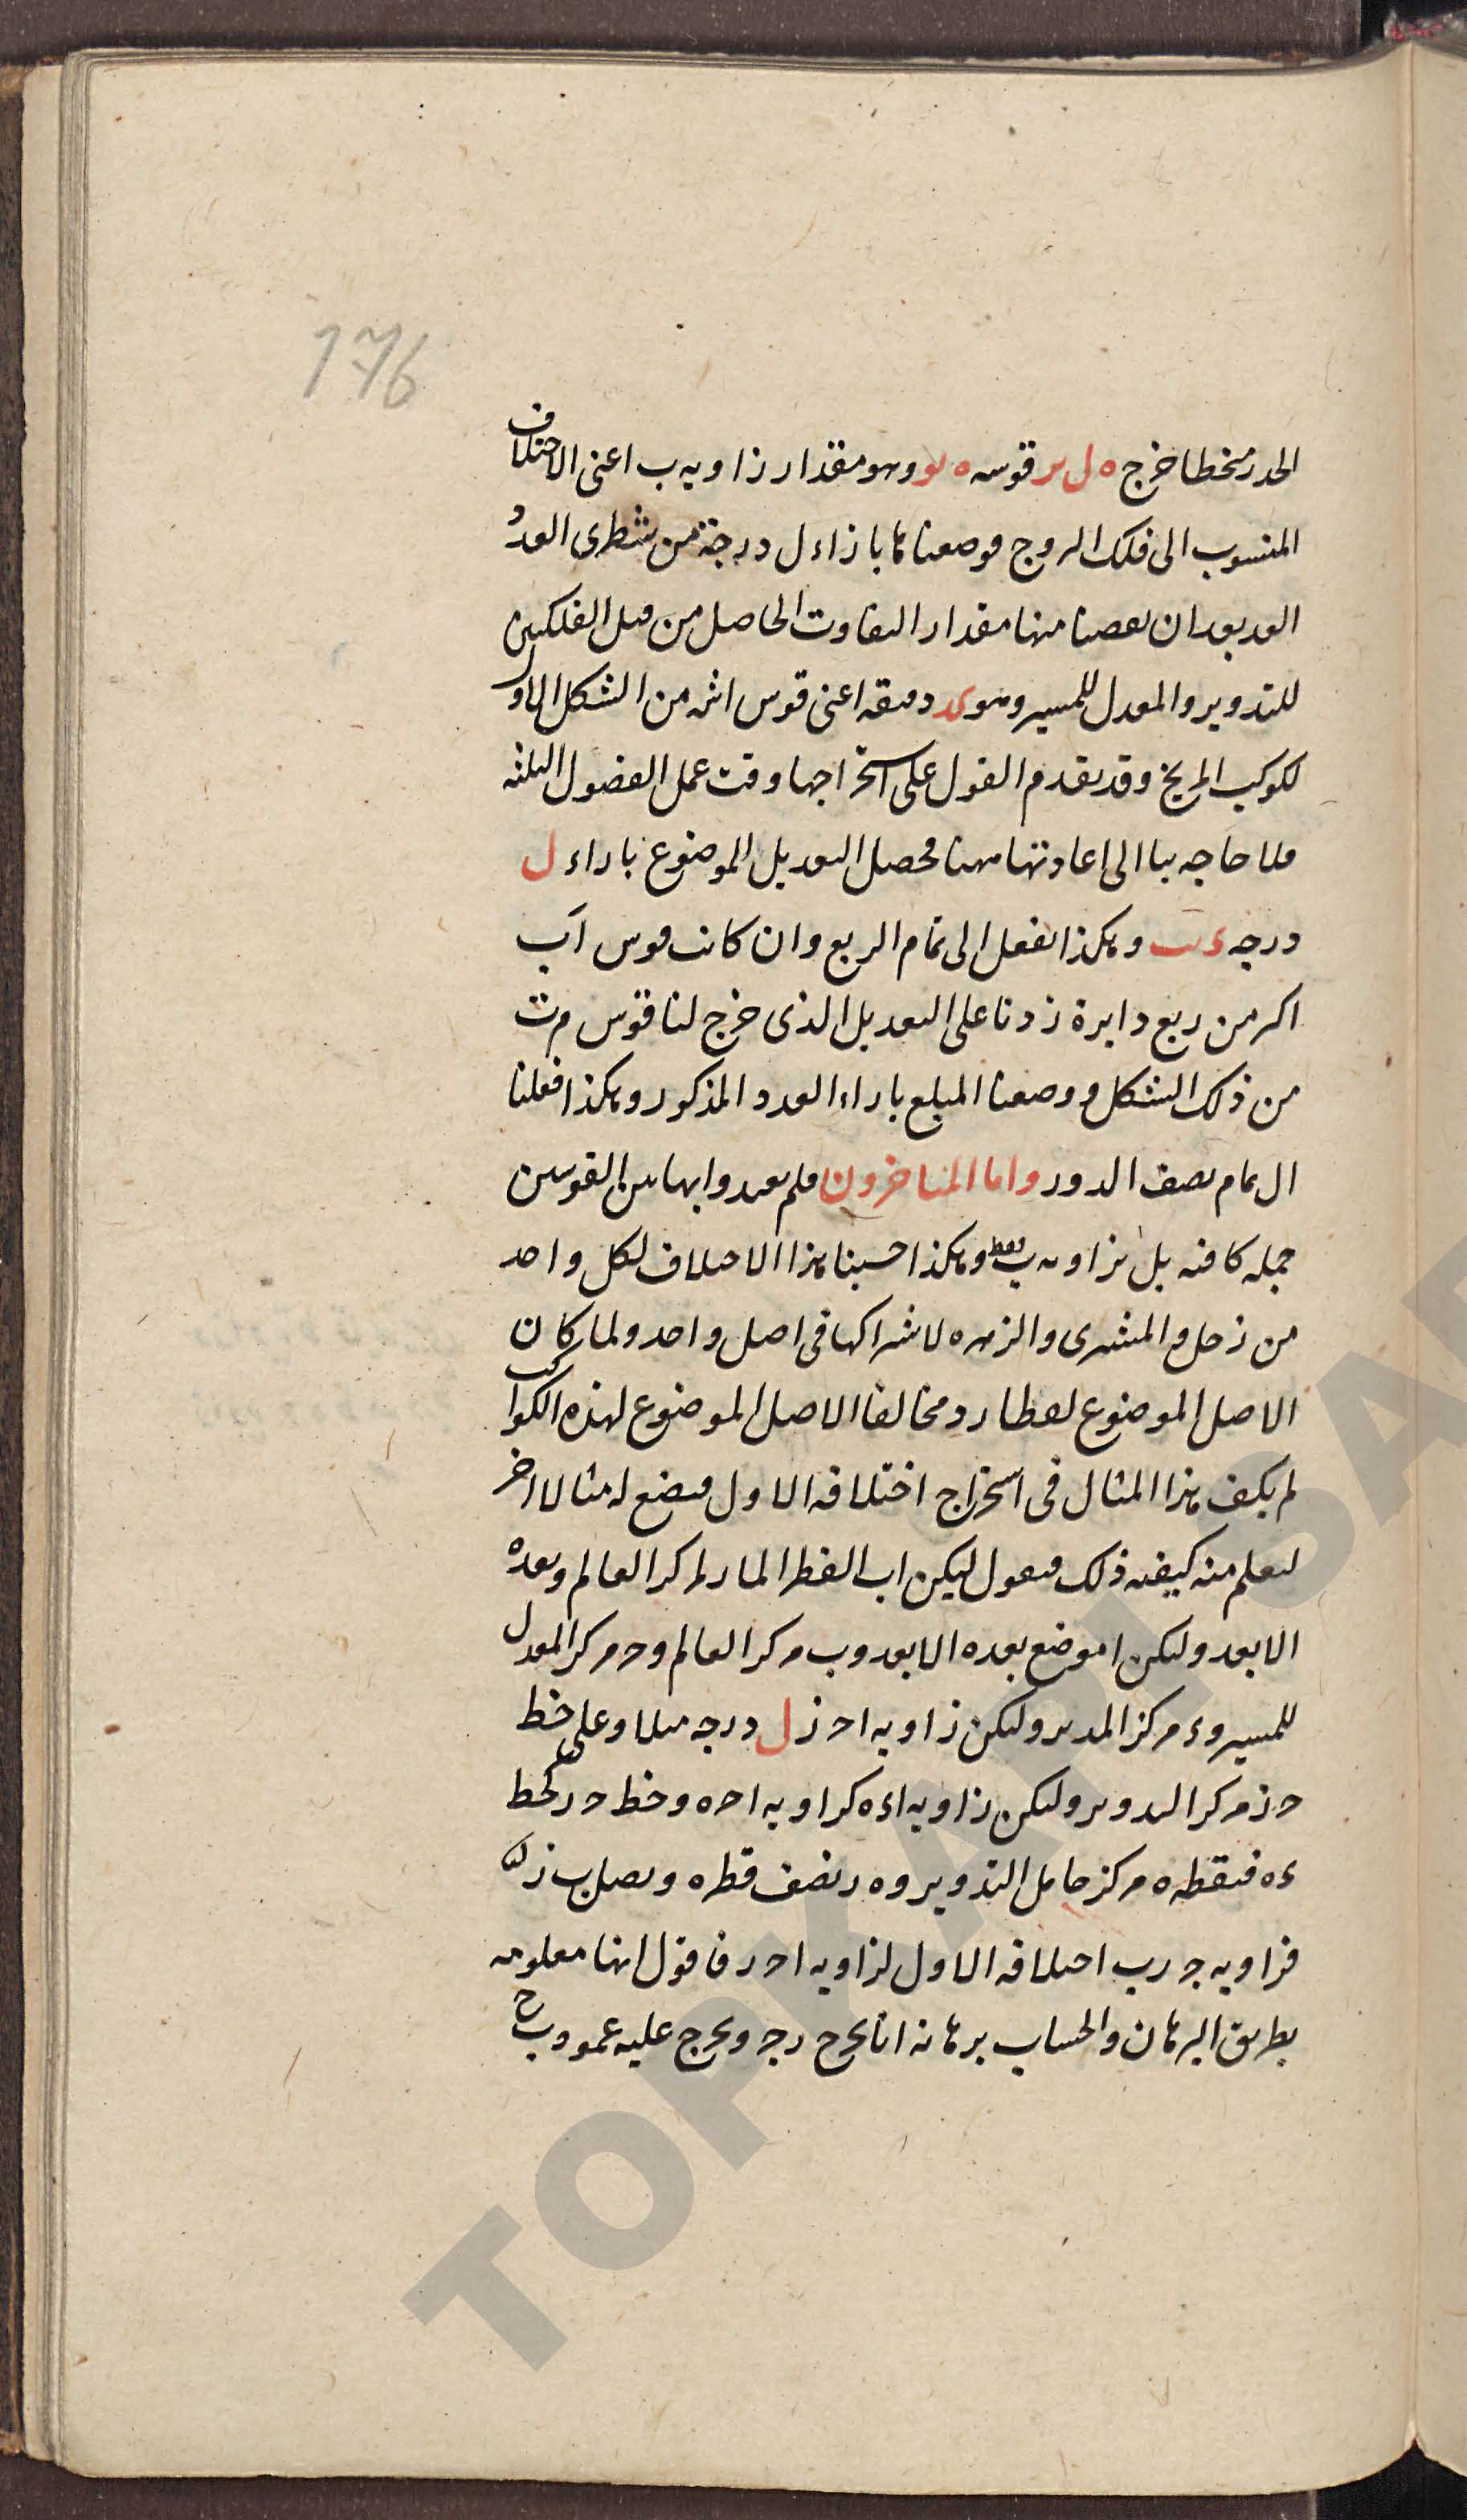 176
الجذر منحطا خرج ه ل س قوسه ه لو وهو مقدار زاويه ب اعنى الاختلاف
المنسوب الى فلك البروج فوضعناها بازاء ل درجة من سطرى العدد
العد بعد ان نقصنا منها مقدار التفاوت الحاصل من قبل الفلكين
للتدوير والمعدل للمسير وهو ى دقيقه اعنى قوس ا من الشكل الاول
لكوكب المريخ وقد تقدم القول على استخراجها وقت عمل الفصول الثلثه
فلا حاجه بنا الى اعادتها ههنا فحصل التعديل الموضوع بازاء ل
درجه وهكذا نفعل الى تمام الربع وان كانت قوس اب
اكبر من ربع دايرة زدنا على التعديل الذى خرج لنا قوس م ت
من ذلك الشكل ووضعنا المبلغ بازاء العدد المذكور وهكذا فعلنا
الى تمام نصف الدور واما المتاخرون فلم يعيدوا بهاتين القوسين
جمله كافيه بل بزاويه ب فقط وهكذا حسبنا هذا الاختلاف لكل واحد
من زحل والمشترى والزهره لاشتراكها فى اصل واحد ولما كان
الاصل الموضوع لعطارد مخالفا الاصل الموضوع لهذه الكواكب
لم يكف هذا المثال فى استخراج اختلافه الاول فنضع له مثالا اخر
ليعلم منه كيفيه ذلك فنقول ليكن اب القطر المار بمركز العالم وبعده
الابعد وليكن ا موضع بعده الابعد وب مركز العالم وح مركز المعدل
للمسير وء مركز المدير وليكن زاويه ا ح ز ل درجه مثلا وعلى خط
ح ز مركز التدوير وليكن زاويه ا ء ه كزاويه ا ح ه وخط ح ز كخط
ء ه فنقطه ه مركز حامل التدوير وه ر نصف قطره ونصل ب ز
فزاويه ج ر ب اختلافه الاول لزاويه ا ح ر فاقول انها معلومه
بطريق البرهان والحساب برهانه انا نخرج ر ج ونخرج عليه عمود ب ح